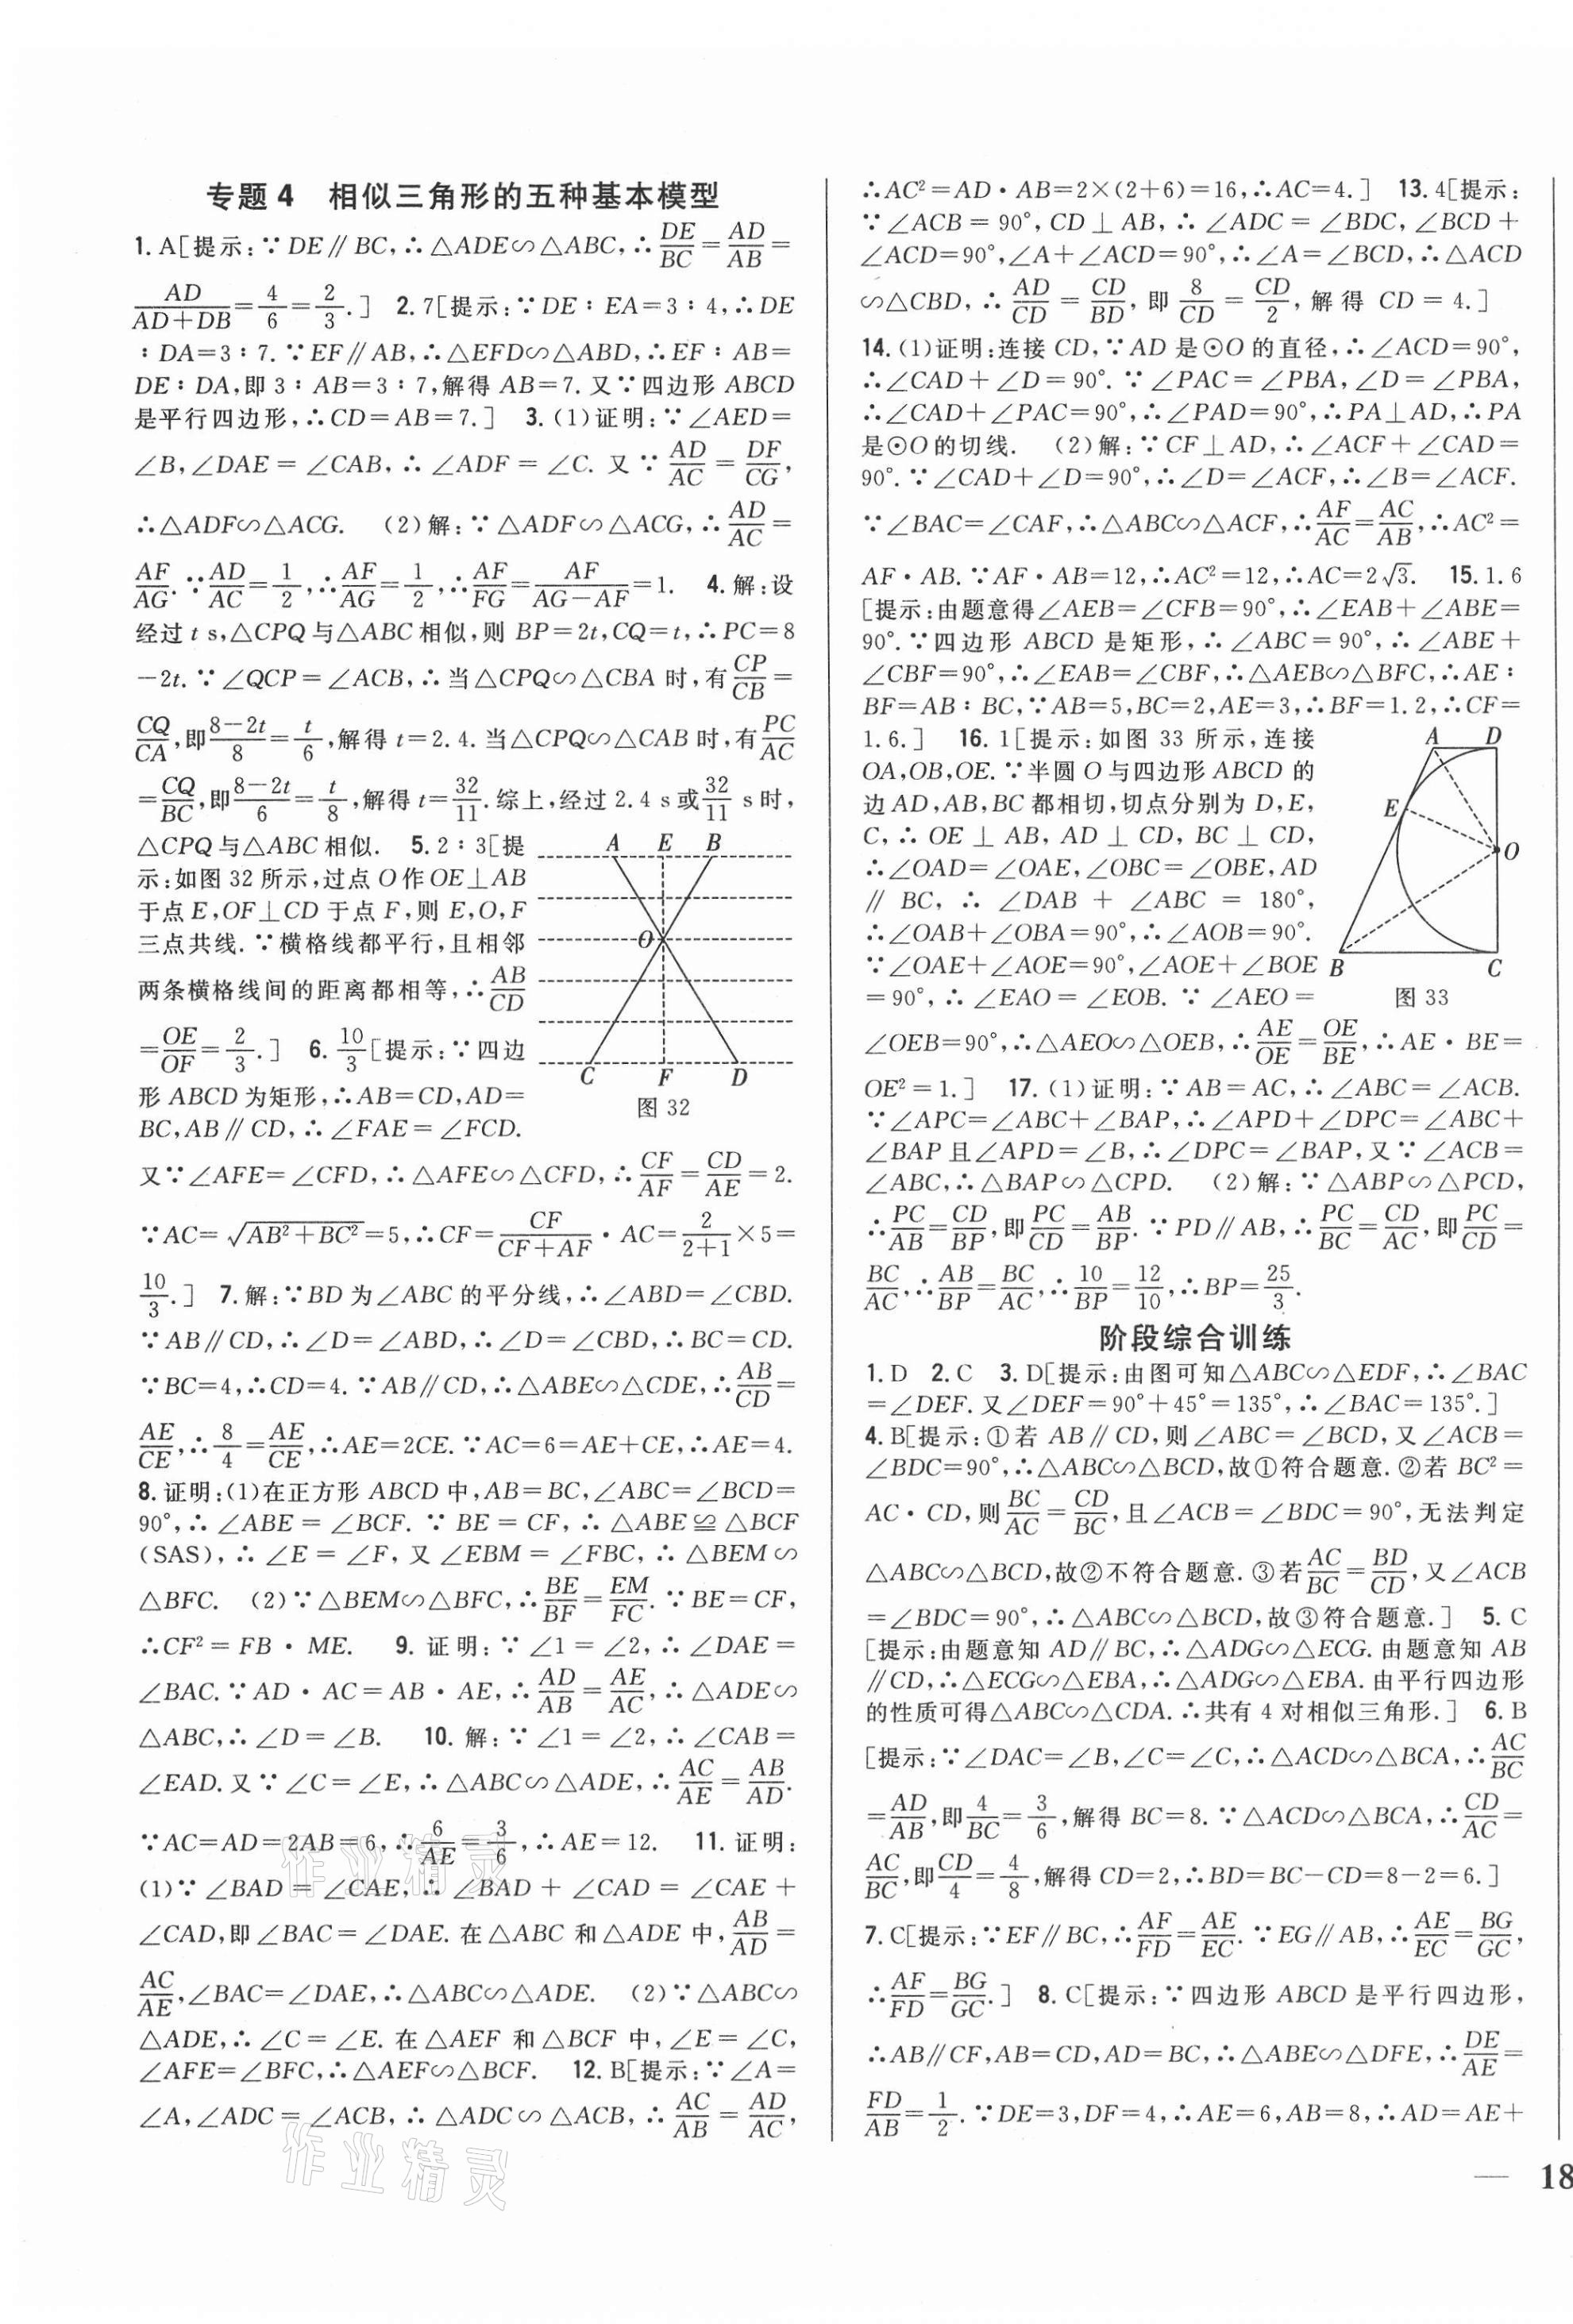 专题4 相似三角形的五种基本模型
1.A[提示:∵DE∥BC,∴△ADE∽△ABC,∴DE/BC=AD/AB=
AD/(AD+DB)=4/6=2/3.] 2.7[提示:∵DE∶EA=3∶4,∴DE
∶DA=3∶7.∵EF∥AB,∴△EFD∽△ABD,∴EF∶AB=
DE∶DA,即3∶AB=3∶7,解得AB=7.又∵四边形ABCD
是平行四边形,∴CD=AB=7.] 3.(1)证明:∵∠AED=
∠B,∠DAE=∠CAB,∴∠ADF=∠C.又∵AD/AC=DF/CG,
∴△ADF∽△ACG. (2)解:∵△ADF∽△ACG,∴AD/AC=
AF/AG.∵AD/AC=1/2,∴AF/AG=1/2,∴AF/FG=AF/(AG-AF)=1. 4.解:设
经过t s,△CPQ与△ABC相似,则BP=2t,CQ=t,∴PC=8
-2t.∵∠QCP=∠ACB,∴当△CPQ∽△CBA时,有CP/CB=
CQ/CA,即(8-2t)/8=t/6,解得t=2.4.当△CPQ∽△CAB时,有PC/AC
=CQ/BC,即(8-2t)/6=t/8,解得t=32/11.综上,经过2.4 s或32/11 s时,
△CPQ与△ABC相似. 5.2∶3[提
示:如图32所示,过点O作OE⊥AB
于点E,OF⊥CD于点F,则E,O,F
三点共线.∵横格线都平行,且相邻
两条横格线间的距离都相等,∴AB/CD
=OE/OF=2/3.] 6.10/3[提示:∵四边
形ABCD为矩形,∴AB=CD,AD=
BC,AB∥CD,∴∠FAE=∠FCD.
A E B
O
C F D
图32
又∵∠AFE=∠CFD,∴△AFE∽△CFD,∴CF/AF=CD/AE=2.
∵AC=√(AB²+BC²)=5,∴CF=CF/(CF+AF)·AC=2/(2+1)×5=
10/3.] 7.解:∵BD为∠ABC的平分线,∴∠ABD=∠CBD.
∵AB∥CD,∴∠D=∠ABD,∴∠D=∠CBD,∴BC=CD.
∵BC=4,∴CD=4.∵AB∥CD,∴△ABE∽△CDE,∴AB/CD=
AE/CE,∴8/4=AE/CE,∴AE=2CE.∵AC=6=AE+CE,∴AE=4.
8.证明:(1)在正方形ABCD中,AB=BC,∠ABC=∠BCD=
90°,∴∠ABE=∠BCF.∵BE=CF,∴△ABE≌△BCF
(SAS),∴∠E=∠F,又∠EBM=∠FBC,∴△BEM∽
△BFC. (2)∵△BEM∽△BFC,∴BE/BF=EM/FC.∵BE=CF,
∴CF²=FB·ME. 9.证明:∵∠1=∠2,∴∠DAE=
∠BAC.∵AD·AC=AB·AE,∴AD/AB=AE/AC,∴△ADE∽
△ABC,∴∠D=∠B. 10.解:∵∠1=∠2,∴∠CAB=
∠EAD.又∵∠C=∠E,∴△ABC∽△ADE,∴AC/AE=AB/AD.
∵AC=AD=2AB=6,∴6/AE=3/6,∴AE=12. 11.证明:
(1)∵∠BAD=∠CAE,∴∠BAD+∠CAD=∠CAE+
∠CAD,即∠BAC=∠DAE.在△ABC和△ADE中,AB/AD=
AC/AE,∠BAC=∠DAE,∴△ABC∽△ADE. (2)∵△ABC∽
△ADE,∴∠C=∠E.在△AEF和△BCF中,∠E=∠C,
∠AFE=∠BFC,∴△AEF∽△BCF. 12.B[提示:∵∠A=
∠A,∠ADC=∠ACB,∴△ADC∽△ACB,∴AC/AB=AD/AC,
∴AC²=AD·AB=2×(2+6)=16,∴AC=4.] 13.4[提示:
∵∠ACB=90°,CD⊥AB,∴∠ADC=∠BDC,∠BCD+
∠ACD=90°,∠A+∠ACD=90°,∴∠A=∠BCD,∴△ACD
∽△CBD,∴AD/CD=CD/BD,即8/CD=CD/2,解得CD=4.]
14.(1)证明:连接CD,∵AD是⊙O的直径,∴∠ACD=90°,
∴∠CAD+∠D=90°.∵∠PAC=∠PBA,∠D=∠PBA,
∴∠CAD+∠PAC=90°,∴∠PAD=90°,∴PA⊥AD,∴PA
是⊙O的切线. (2)解:∵CF⊥AD,∴∠ACF+∠CAD=
90°.∵∠CAD+∠D=90°,∴∠D=∠ACF,∴∠B=∠ACF.
∵∠BAC=∠CAF,∴△ABC∽△ACF,∴AF/AC=AC/AB,∴AC²=
AF·AB.∵AF·AB=12,∴AC²=12,∴AC=2√3. 15.1.6
[提示:由题意得∠AEB=∠CFB=90°,∴∠EAB+∠ABE=
90°.∵四边形ABCD是矩形,∴∠ABC=90°,∴∠ABE+
∠CBF=90°,∴∠EAB=∠CBF,∴△AEB∽△BFC,∴AE∶
BF=AB∶BC,∵AB=5,BC=2,AE=3,∴BF=1.2,∴CF=
1.6.] 16.1[提示:如图33所示,连接
OA,OB,OE.∵半圆O与四边形ABCD的
边AD,AB,BC都相切,切点分别为D,E,
C,∴OE⊥AB,AD⊥CD,BC⊥CD,
∴∠OAD=∠OAE,∠OBC=∠OBE,AD
∥BC,∴∠DAB+∠ABC=180°,
∴∠OAB+∠OBA=90°,∴∠AOB=90°.
∵∠OAE+∠AOE=90°,∠AOE+∠BOE
=90°,∴∠EAO=∠EOB.∵∠AEO=
A D
E
O
B C
图33
∠OEB=90°,∴△AEO∽△OEB,∴AE/OE=OE/BE,∴AE·BE=
OE²=1.] 17.(1)证明:∵AB=AC,∴∠ABC=∠ACB.
∵∠APC=∠ABC+∠BAP,∴∠APD+∠DPC=∠ABC+
∠BAP且∠APD=∠B,∴∠DPC=∠BAP,又∵∠ACB=
∠ABC,∴△BAP∽△CPD. (2)解:∵△ABP∽△PCD,
∴PC/AB=CD/BP,即PC/CD=AB/BP.∵PD∥AB,∴PC/BC=CD/AC,即PC/CD=
BC/AC,∴AB/BP=BC/AC,∴10/BP=12/10,∴BP=25/3.
阶段综合训练
1.D 2.C 3.D[提示:由图可知△ABC∽△EDF,∴∠BAC
=∠DEF.又∠DEF=90°+45°=135°,∴∠BAC=135°.]
4.B[提示:①若AB∥CD,则∠ABC=∠BCD,又∠ACB=
∠BDC=90°,∴△ABC∽△BCD,故①符合题意.②若BC²=
AC·CD,则BC/AC=CD/BC,且∠ACB=∠BDC=90°,无法判定
△ABC∽△BCD,故②不符合题意.③若AC/BC=BD/CD,又∠ACB
=∠BDC=90°,∴△ABC∽△BCD,故③符合题意.] 5.C
[提示:由题意知AD∥BC,∴△ADG∽△ECG.由题意知AB
∥CD,∴△ECG∽△EBA,∴△ADG∽△EBA.由平行四边形
的性质可得△ABC∽△CDA.∴共有4对相似三角形.] 6.B
[提示:∵∠DAC=∠B,∠C=∠C,∴△ACD∽△BCA,∴AC/BC
=AD/AB,即4/BC=3/6,解得BC=8.∵△ACD∽△BCA,∴CD/AC=
AC/BC,即CD/4=4/8,解得CD=2,∴BD=BC-CD=8-2=6.]
7.C[提示:∵EF∥BC,∴AF/FD=AE/EC.∵EG∥AB,∴AE/EC=BG/GC,
∴AF/FD=BG/GC.] 8.C[提示:∵四边形ABCD是平行四边形,
∴AB∥CF,AB=CD,AD=BC,∴△ABE∽△DFE,∴DE/AE=
FD/AB=1/2.∵DE=3,DF=4,∴AE=6,AB=8,∴AD=AE+
— 18
作业精灵
作业精灵